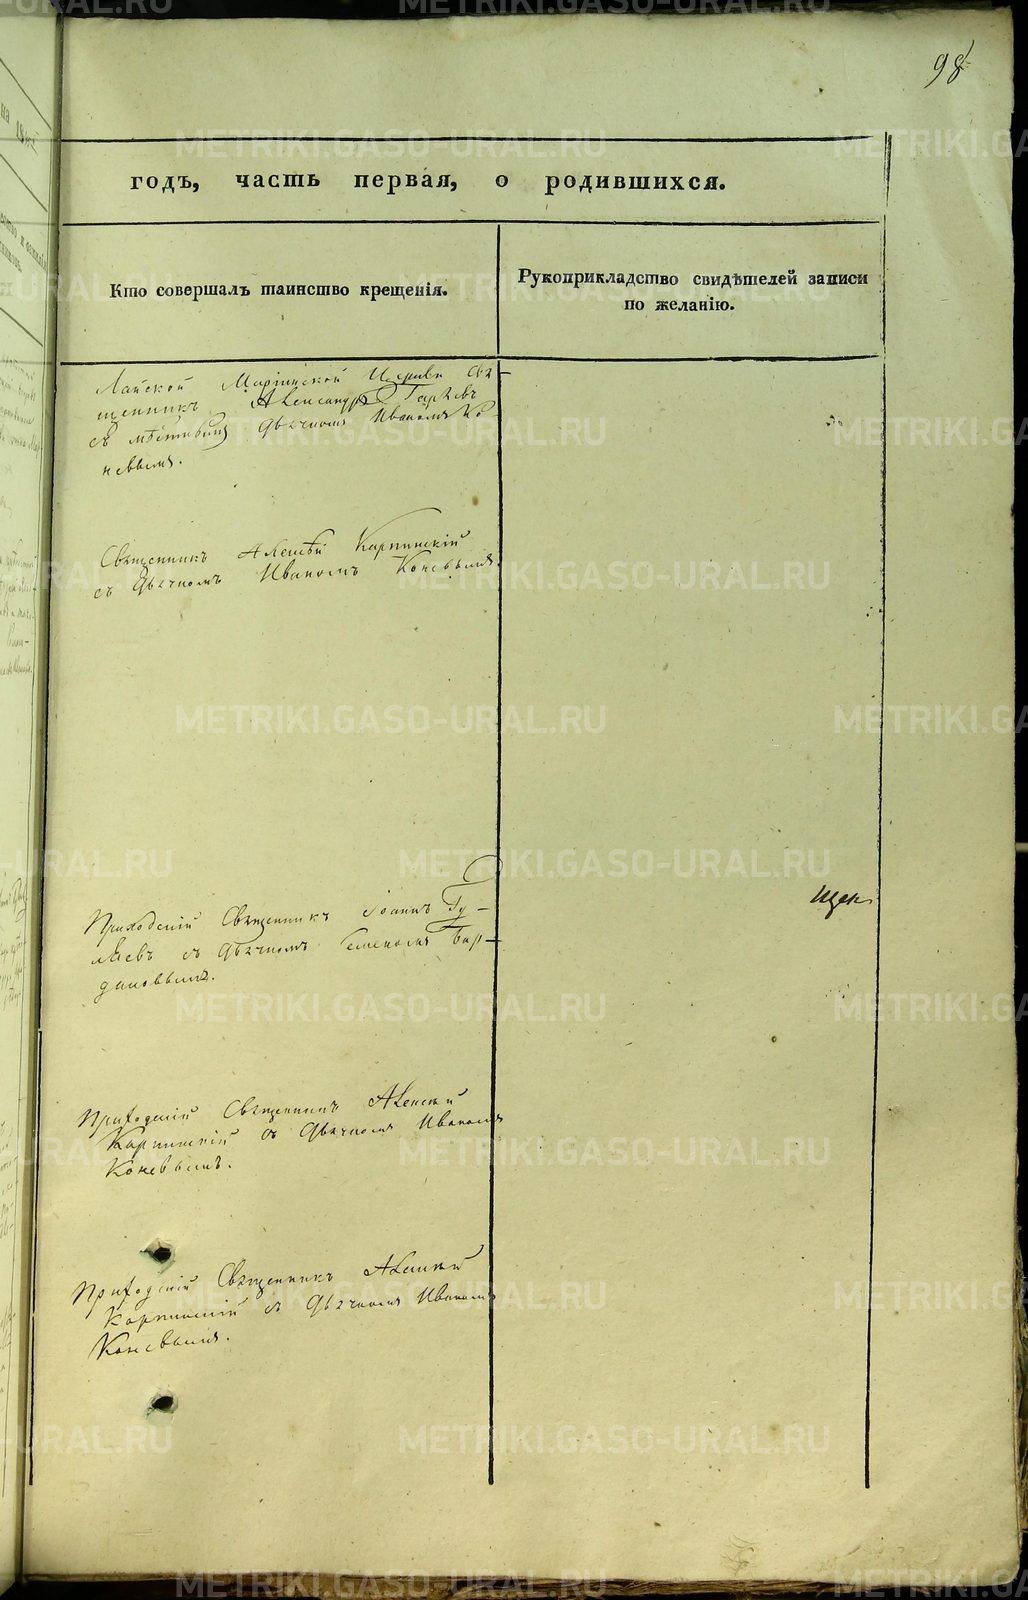 98
годъ, часть первая, о родившихся.
Кто совершалъ таинство крещенія.
Рукоприкладство свидѣтелей записи
по желанію.
Лайской Маріинской Церкви Свя-
щенникъ Александръ
съ мѣстнымъ Дьячкомъ Иваномъ Ко
невымъ.
Священникъ Алексѣй Карпинскій
съ Дьячкомъ Иваномъ Коневымъ.
Приходскій Священникъ Іоаннъ Гу-
ляевъ съ Дьячкомъ Семеномъ Бог-
дановымъ.
Приходскій Священникъ Алексій
Карпинскій съ Дьячкомъ Иваномъ
Коневымъ.
Приходскій Священникъ Алексій
Карпинскій съ Дьячкомъ Иваномъ
Коневымъ.
METRIKI.GASO-URAL.RU